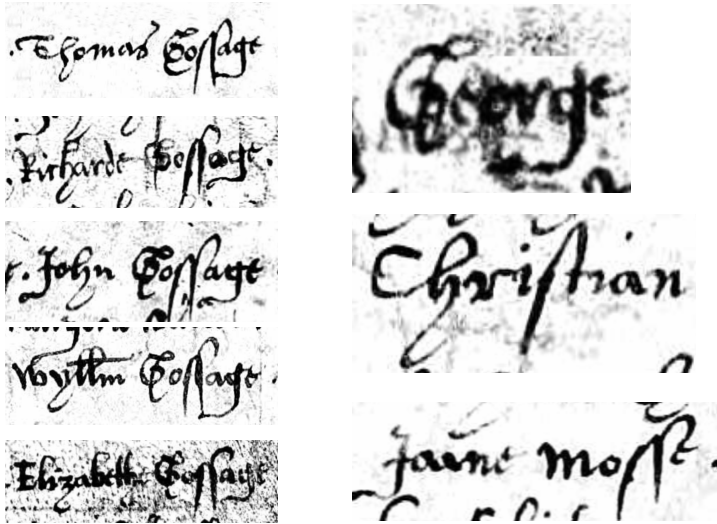 Thomas Gossage
Richarde Gossage.
John Gossage
Wyllm Gossage
Elizabethe Gossage
George
Christian
Jaane Mosse